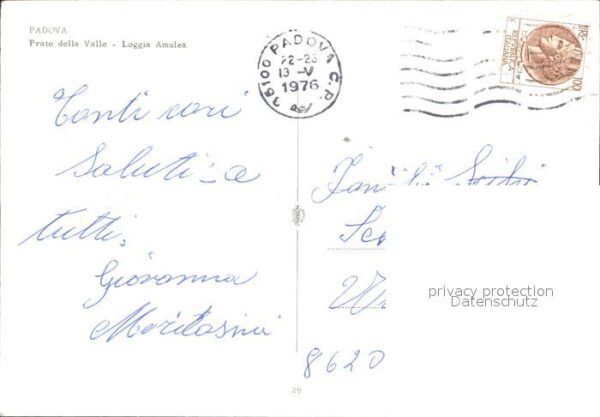 PADOVA
Prato della Valle - Loggia Amulea
35100 PADOVA C.P.
22-23
13-V
1976
REPUBBLICA ITALIANA
100
Tanti cari
saluti a
tutti.
Giovanna
8620
privacy protection
Datenschutz
29